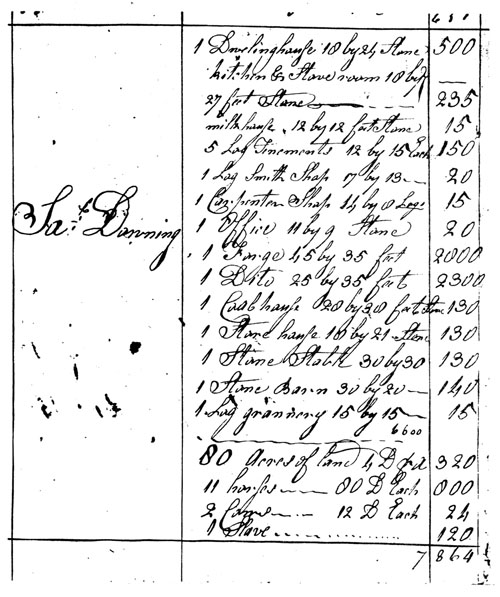 1 Dwelinghause 18 by 24 Stone 500
Kitchen & Stove room 18 by
27 feet Stone 235
milkhause 12 by 12 feet Stone 15
5 Log Tinements 12 by 15 Each 150
1 Log Smith Shop 17 by 13 20
1 Carpenter Shop 14 by 8 Logs 15
Downing
1 Office 11 by 9 Stone 20
1 Forge 45 by 35 feet 2000
1 Dito 25 by 35 feet 2300
1 Coalhause 28 by 38 feet Stone 130
1 Stone hause 18 by 21 Stone 130
1 Stone Stable 30 by 30 130
1 Stone Barn 30 by 20 140
1 Log grannery 15 by 15 15
6600
80 Acres of land 4 D 320
11 horses 80 D Each 800
2 Cows 12 D Each 24
1 Slave 120
7 864